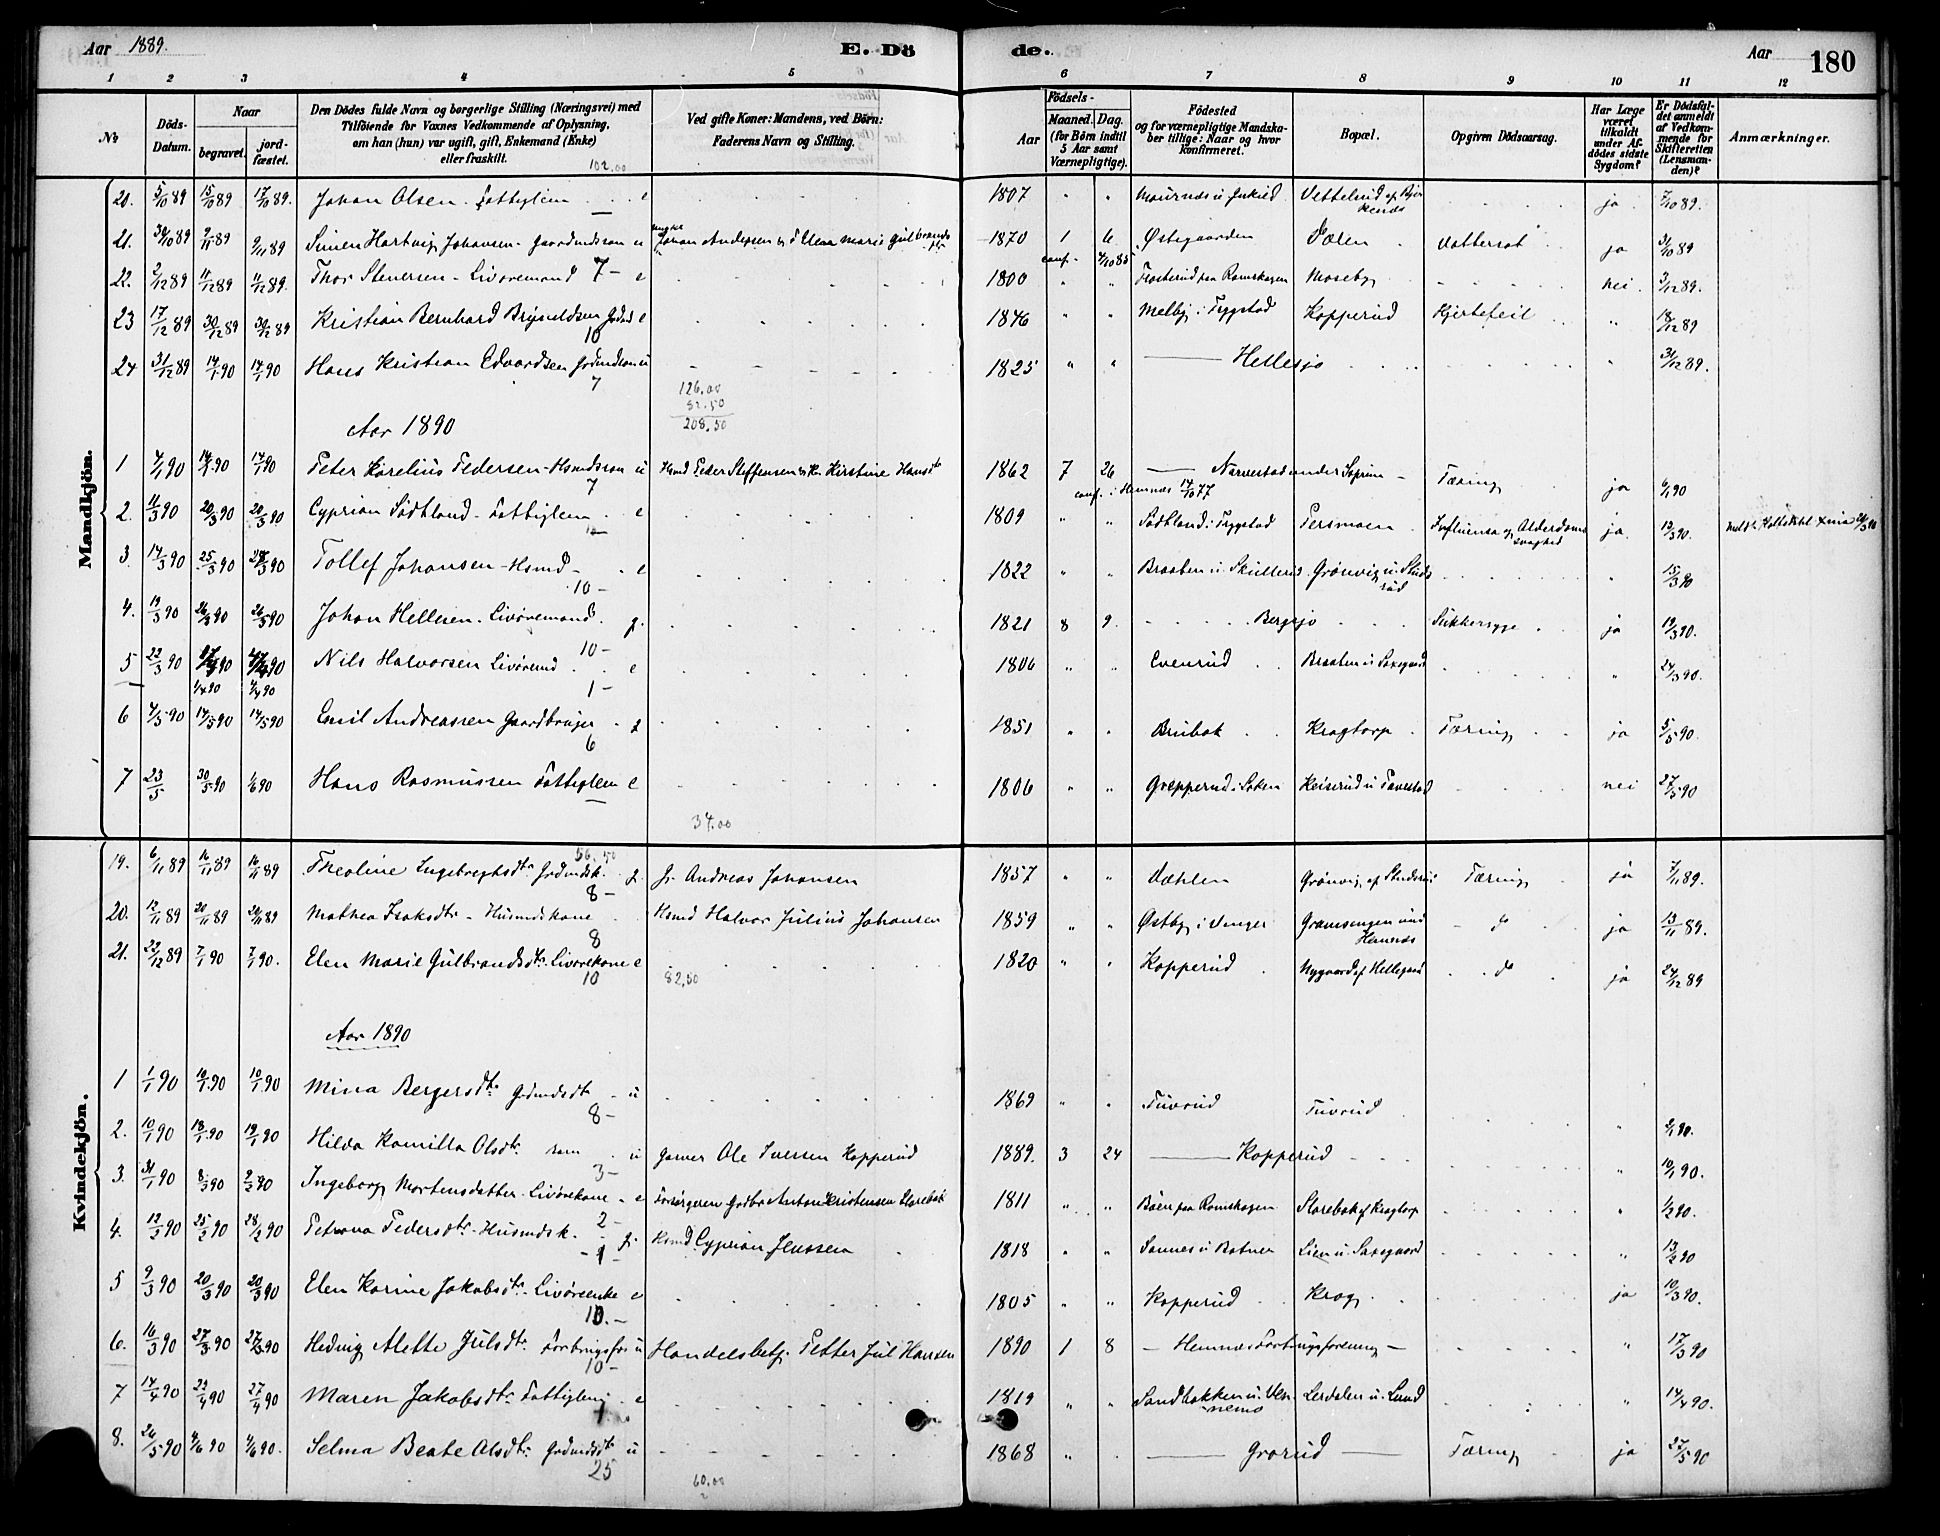 Aar 1889. E. Dö de. Aar 180
1 2 3 4 5 6 7 8 9 10 11 12
No
Döds-Datum.
Naar
begravet.
jord-fæstet.
Den Dödes fulde Navn og borgerlige Stilling (Næringsvei) med
Tilföiende for Voxnes Vedkommende af Oplysning,
om han (hun) var ugift, gift, Enkemand (Enke)
eller fraskilt.
102.00
Ved gifte Koner: Mandens, ved Börn:
Faderens Navn og Stilling.
Födsels-
Aar
Maaned. Dag.
(for Börn indtil
5 Aar samt
Værnepligtige).
Födested
og for værnepligtige Mandska-
ber tillige: Naar og hvor
konfirmeret.
Bopæl.
Opgiven Dödsaarsag.
Har Læge
været
tilkaldt
under Af-
dödes sidste
Sygdom?
Er Dödsfal-
det anmeldt
af Vedkom-
mende for
Skifteretten
(Lensman-
den)?
Anmærkninger.
Mandkjön.
20. 5/10 89 15/10 89 17/10 89. Johan Olsen. Fattiglem e 1807 " " Vettelsrud af Bjørkenæs ja 7/10 89.
21. 30/10 89 9/11 89 9/11 89 Simen Hartvig Johansen. Gaardmdssøn u Johan Andersen 1870 1 6 Østegaarden Vattersot ja 31/10 89
conf. 4/10 85
22. 2/12 89 11/12 89 11/12 89. Thor Stenersen - Livøremand 7- e 1800 " " Froterud paa Romskogen Moseby nei. 3/12 89.
23 17/12 89 30/12 89 30/12 89 Kristian Bernhard Brynildsen e 1846 " " Melby i Trygstad Kopperud Hjertefeil " 18/12 89
10
24 31/12 89 14/1 90 14/1 90 Hans Kristian Edvardsen u 1825 " " Hellesjø " 31/12 89.
7
126.00
82.50
208.50
Aar 1890
1 4/1 90 14/1 90 14/1 90 Peter Karelius Pedersen - Hsmdssøn u Hsmd Peder Steffensen Kirstine Hansdtr 1862 7 26 Tæring ja 6/1 90
7 conf. i Hemnæs 14/10 77
2. 11/3 90 20/3 90 20/3 90 Cyprian Sødtland. Fattiglem e 1809 " " Sødtland i Trygstad Persmoen Influensa og Alderdoms svaghed ja. 13/3 90.
3. 14/3 90 25/3 90 Tollef Johansen - Hsmd - e 1822 " " Braaten u. Skullerud Grønvig u. Studsrud " 15/3 90
10-
4. 19/3 90 26/3 90 26/3 90 Johan Hellesen. Livøremand. g. 1821 8 9. Bergsjø Sukkersyge ja 19/3 90.
10-
5 22/3 90 Nils Halvorsen Livøremd e 1806 " " Evenrud Braaten u. Saxegaard " 24/3 90.
1/4 90 4/4 90 1-
6 4/5 90 14/5 90 14/5 90 Emil Andreassen Gaardbruger g 1851 " " Brubak Kragtorp Tæring ja 5/5 90.
6
7 23/5 30/5 90 1/6 90 Hans Rasmussen Fattiglem e 1806 " " Grepperud i Soken Keiserud u Tavestad nei 27/5 90
34.00
Kvindekjön.
56.50
19. 6/11 89 16/11 89 16/11 89 Theoline Ingebregtsdtr g. Andreas Johansen 1857 " " Dæhlen Grønvig af Studsrud Tæring ja 7/11 89.
8-
20. 12/11 89 20/11 89 20/11 89 Mathea Isaksdtr - Husmdskone Hsmd Halvor Julius Johansen 1859 " " Østby i Venger Gramsengen und Hemnæs do ja 13/11 89.
8
21. 22/12 89 7/1 90 7/1 90. Elen Marie Gulbrandsdtr. Livørekone e 1820 " " Kopperud Nygaard af Hellegaard do ja 24/12 89
10 82,50
Aar 1890
1 1/1 90 10/1 90 10/1 90 Mina Bergersdtr. Grdmdsdtr u 1869 " " Tuvrud Tuvrud
8-
2. 10/1 90 18/1 90 19/1 90 Hilda Kamilla Olsdtr. u Garver Ole Iversen Kopperud 1889. 3 24 Kopperud " 10/1 90.
3-
3. 31/1 90 2/2 90 Ingeborg Mortensdatter. Livørekone e Forsørgeren Grdbr Anton Kristensen Slorebak 1811 " " Bøen paa Romskogen Slorebak af Kragtorp " 1/2 90.
2-
4. 12/2 90 25/2 90 28/2 90 Petrona Pedersdtr. Husmdsk. g. Hsmd Cyprian Jenssen 1818 " " Sannes u Botner Lien u. Saxegaard " 13/2 90
5 9/3 90 20/3 90 20/3 90 Elen Karine Jakobsdtr. Livøreenke e 1805 " " Kopperud Krog ja 10/3 90.
10.-
6. 16/3 90 27/3 90 27/3 90 Hedvig Alette Julsdtr. u Handelsbetj. Petter Jul Hansen 1890 1 8 - Hemnæs Forbrugsforening - " 17/3 90
10-
7 14/4 90 23/4 90 27/4 90 Maren Jakobsdtr Fattiglem e 1819 " " Sandbakken u. Vennemo Lerdalen u. Lund " 14/4 90.
8. 26/5 90 4/6 90 4/6 90. Selma Beate Olsdtr. Grdmdsdtr u 1868 " Grorud Tæring ja 27/5 90
25
60.00